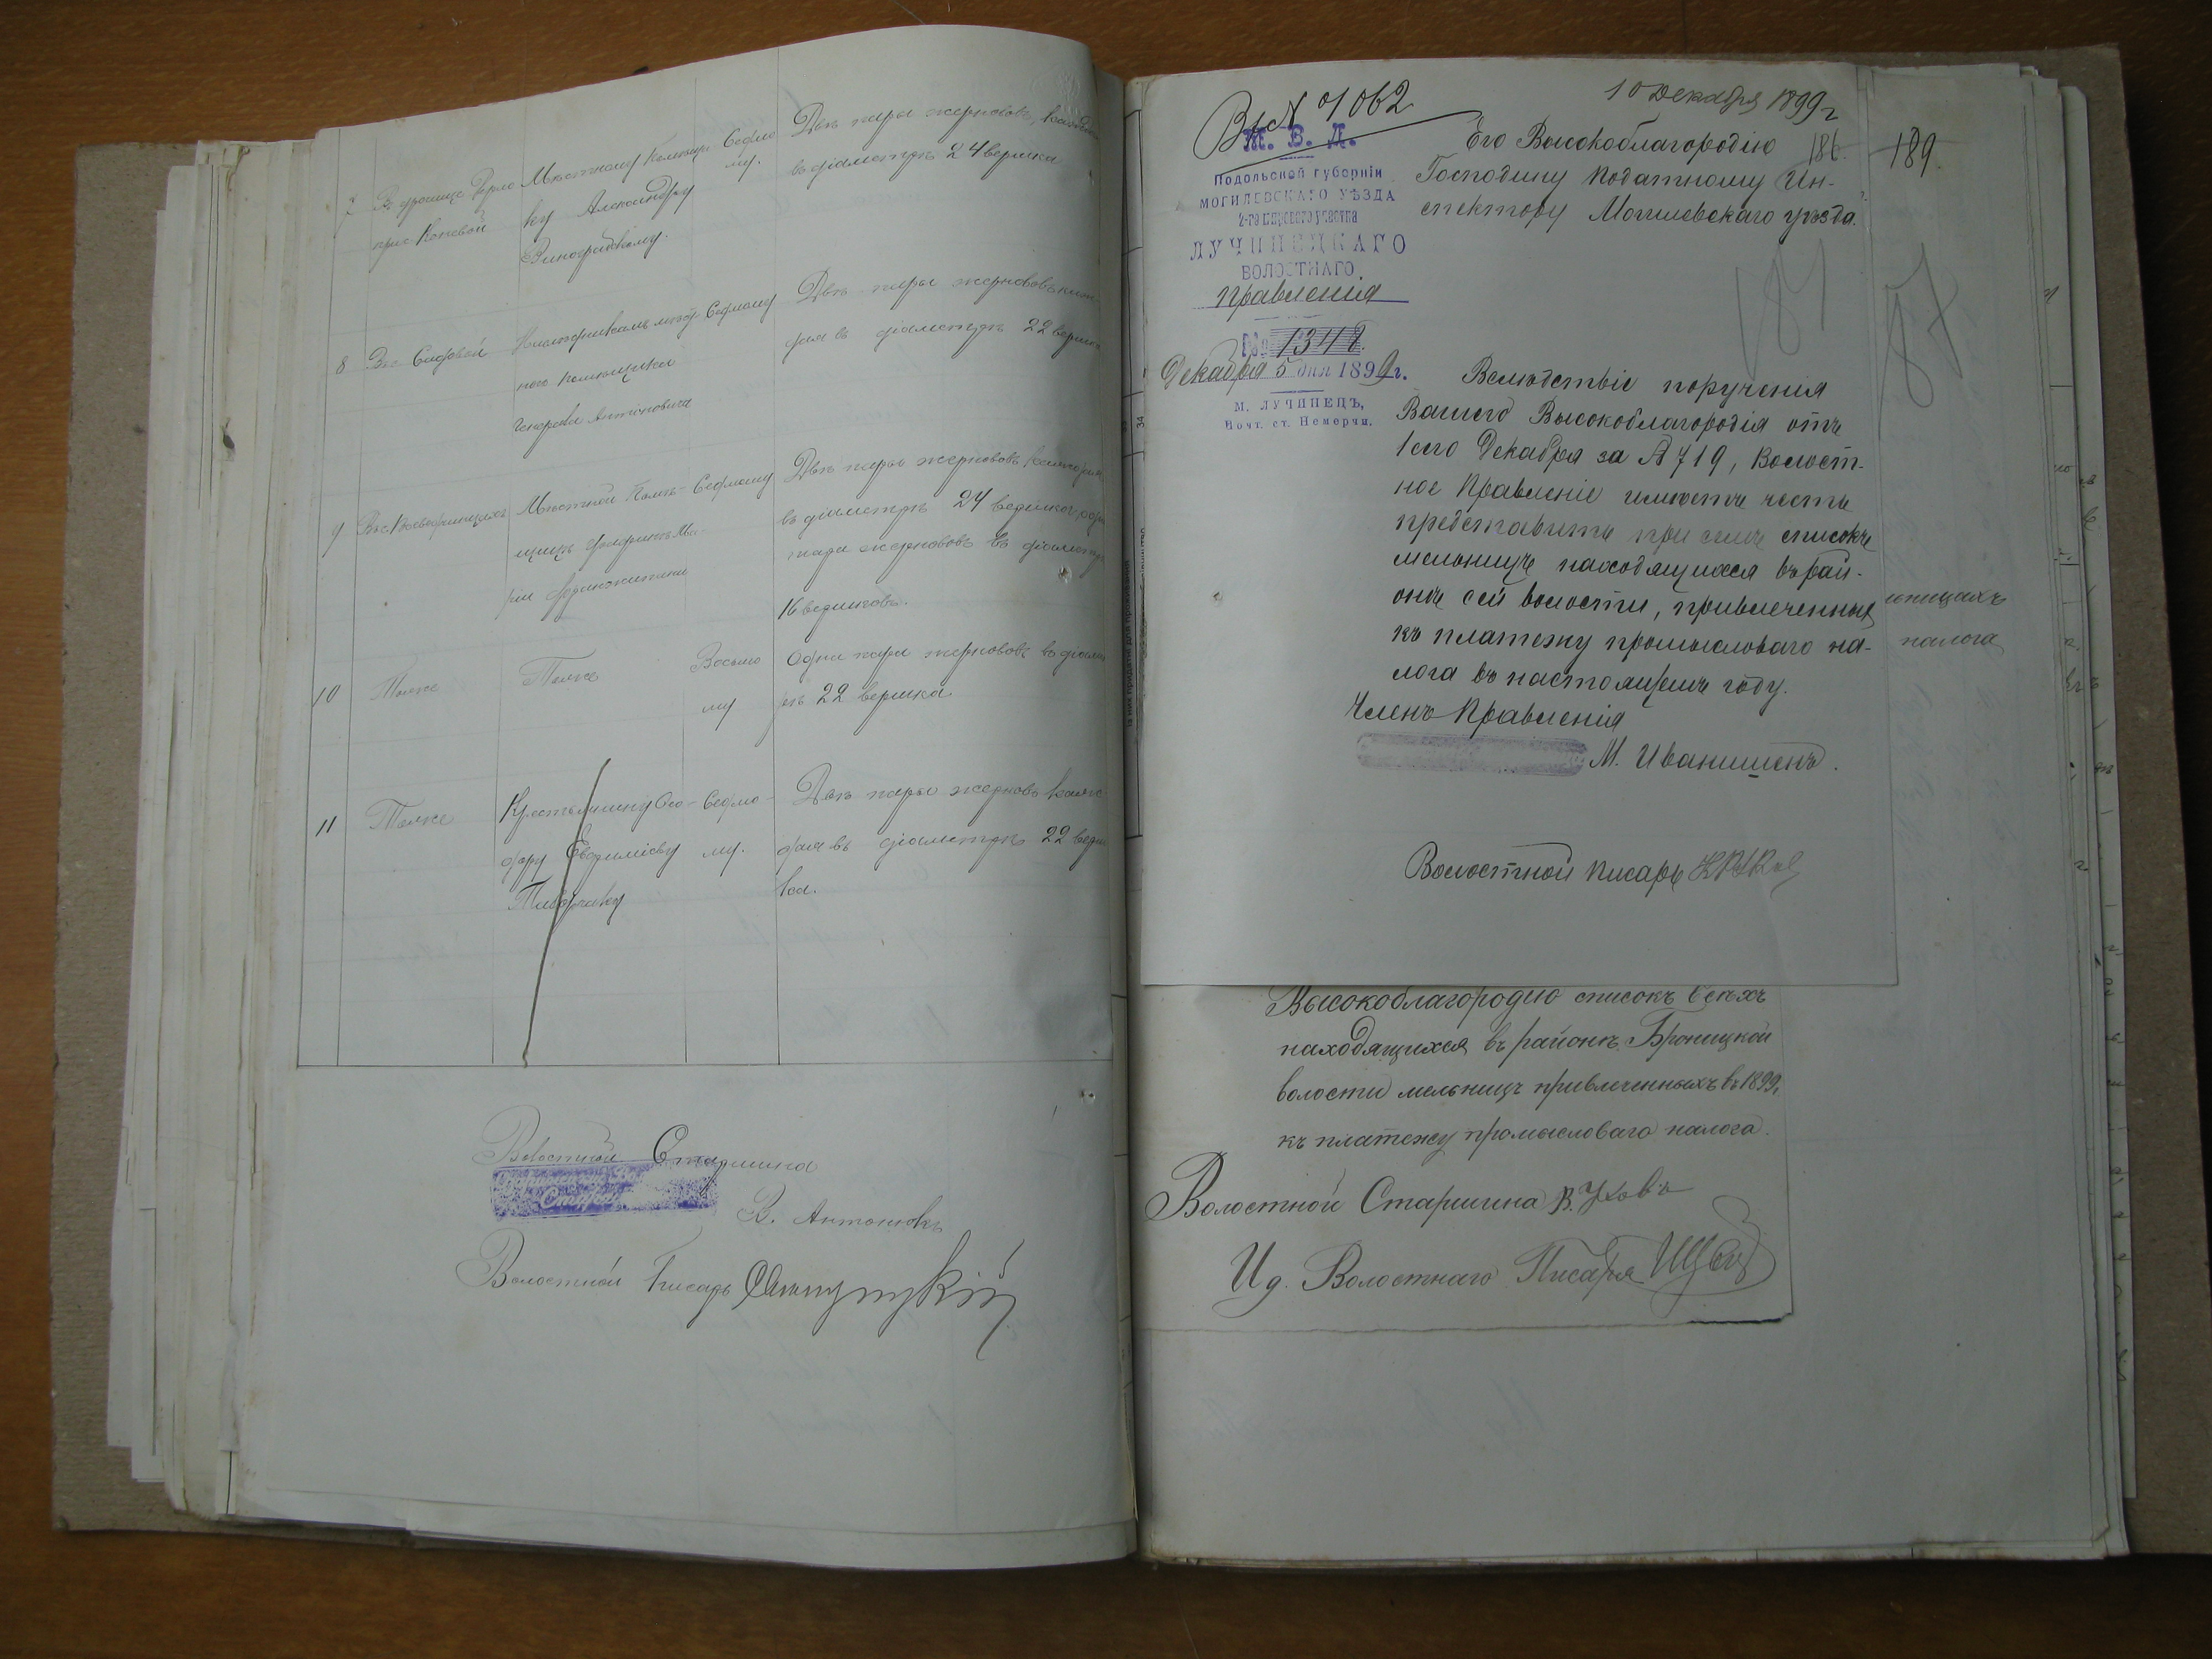 7
Местному Помѣщи-
ку Александру
Седмо
му.
Двѣ пары жернововъ,
въ діаметрѣ 24 вершка
8
ного помѣщика
Седмому
Двѣ пары жернововъ
дая въ діаметрѣ 22 вершка
9
Мѣстной Помѣ-
щицѣ
Седмому
Двѣ пары жернововъ
въ діаметрѣ 24 вершка, одна
пара жернововъ въ діаметрѣ
16 вершковъ.
10
Тоже
Тоже
Восьмо
му
Одна пара жернововъ въ діамет
рѣ 22 вершка
11
Тоже
Крестьянину Ѳео-
дору Евдокиміеву
Седмо-
му.
Двѣ пары жерновъ каж-
дая въ діаметрѣ 22 верш
ка.
Волостной Старшина
В. Антонюкъ
Волостной Писарь
Вх № 1062
10 Декабря 1899 г
М. В. Д.
Подольской губерніи
МОГИЛЕВСКАГО УѢЗДА
2-го мирового участка
ЛУЧИНЕЦКАГО
ВОЛОСТНАГО
Правленія
№ 1348
Декабря 5 дня 1899 г.
М. ЛУЧИНЕЦЪ,
Почт. ст. Немерчи.
Его Высокоблагородію
186
189
Господину Податному Ин-
спектору Могилевскаго уѣзда.
181
87
Вслѣдствіе порученія
Вашего Высокоблагородія отъ
1 сего Декабря за № 719, Волост-
ное Правленіе имѣетъ честь
представить при семъ списокъ
мельницъ находящихся въ рай-
онѣ сей волости, привлеченныя
къ платежу промысловаго на-
лога въ настоящемъ году.
Членъ Правленія
М. Иванишенъ.
Волостной писарь
ьницахъ
налога
Высокоблагородію списокъ всѣхъ
находящихся въ районѣ Броницкой
волости мельницъ привлеченныхъ въ 1899 г.
къ платежу промысловаго налога.
Волостной Старшина В. Уховъ
И д. Волостнаго Писаря